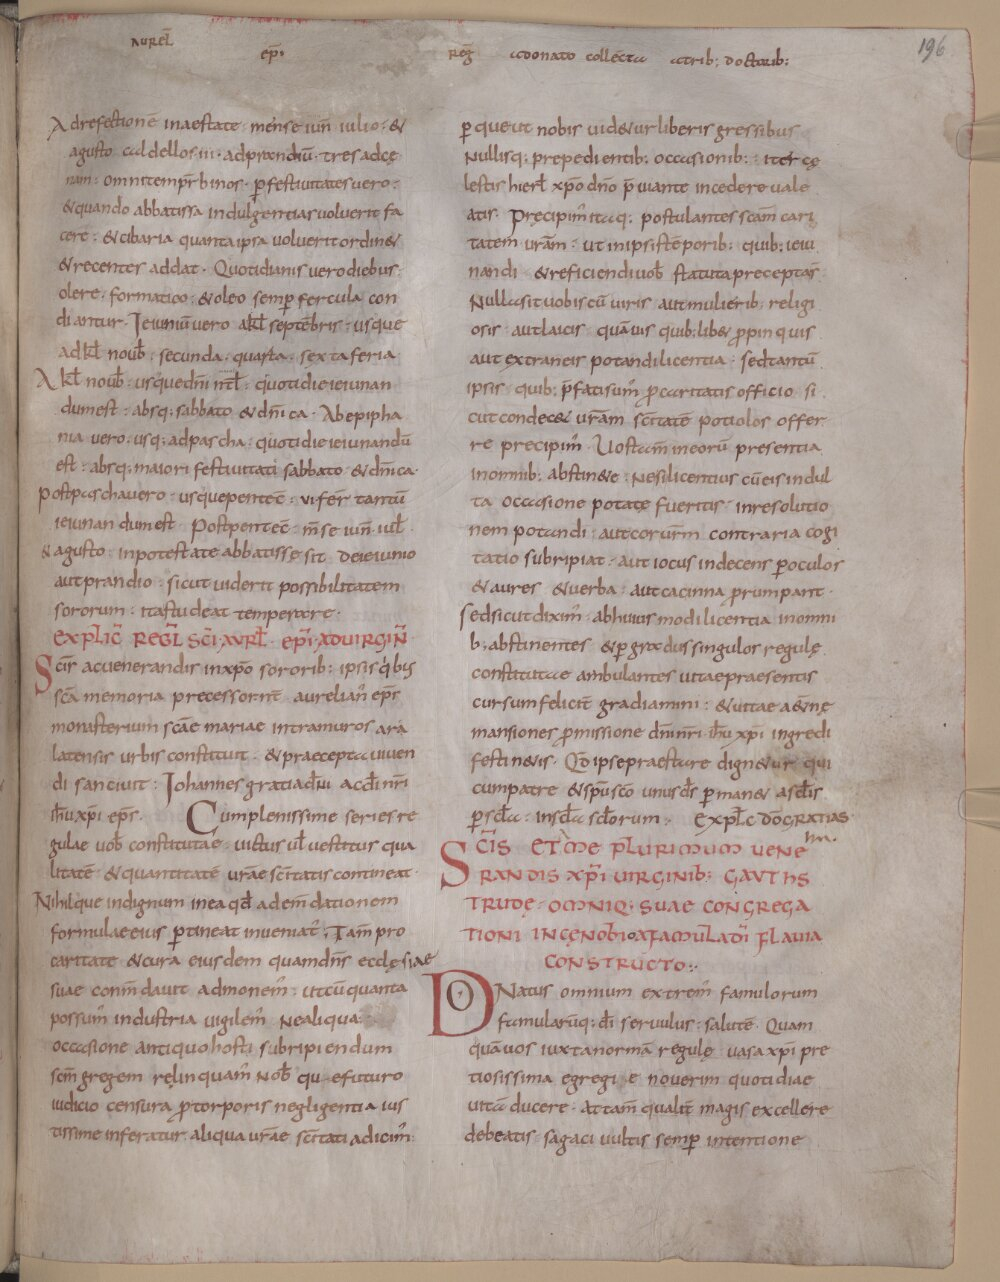 AUREL̄ EP̄I REḠ a donato collecta a trib; doctorib;
196
Ad refectionē in aestate · mense iuñ iulio · &
agusto · cal dellos iii · ad prandiū · tres ad cę
nam · omni temp̄r binos · p̱ festiuitates uero ·
& quando abbatissa indulgentias uoluerit fa
cere · & cibaria quanta ipsa uoluerit ordin&
& recentes addat · Quotidianis uero diebus ·
olere · formatico · & oleo semp̱ fercula con
diantur · Ieiuniū uero a kl̄ septēbris · usque
ad kl̄ nouƀ · secunda · quarta · sexta feria
A kl̄ nouƀ · usque dn̄i nt̄l · quotidie ieiunan
dum est · absq; sabbato & dn̄ica · Ab epipha
nia uero · usq; ad pascha · quotidie ieiunandū
est · absq; maiori festiuitati sabbato · & dn̄ica ·
Post pascha uero · usque pentec̄ · ui fer̄ tantū
ieiunandum est · Post pentec̄ · m̄se iuñ · iul̄
& agusto · in potestate abbatissę sit de ieiunio
aut prandio · sicut uiderit possibilitatem
sororum · ita studeat temperare ·
EXPLIC̄ REḠL SC̄I AVRL̄ EP̄I AD VIRGIN̄
Sc̄is ac uenerandis in xp̄o sororib; ipsis quib;
sc̄a memoria precessor nr̄ aurelian' ep̄s
monasterium sc̄ae mariae intra muros ara
latensis urbis constituit · & praecepta uiuen
di sanciuit · Iohannes gratia dī ac dn̄i nr̄i
ih̄u xp̄i ep̄s · Cum plenissime series re
gulae uoƀ constitutae · uictus ul̄ uestitus qua
litatē · & quantitatē ur̄ae sc̄itatis contineat ·
Nihilque indignum in ea qd̄ ad emdationem
formulae eius p̱tineat inueniat̄ · Tam̄ pro
caritate & cura eiusdem quam dn̄s ecclesiae
suae conmdauit admonem' · ut cū quanta
possum' industria uigilem' Ne aliqua
occasione antiquo hosti subripiendum
sc̄m gregem relinquam' Noƀ que futuro
iudicio censura p̱ torporis negligentia ius
tissime inferatur · aliqua ur̄ae sc̄itati adicim' ·
p̱ que ut nobis uid&ur liberis gressibus
Nullisq; prepedientib; occasionib; · iter cę
lestis hierl̄ xp̄o dn̄o p̄uiante incedere uale
atis · Precipim' itaq; postulantes sc̄am cari
tatem ur̄am · ut in ipsis tēporib; quib; ieiu
nandi & reficiendi uoƀ statuta precepta s̄
Nulla sit uobis cū uiris aut mulierib; religi
osis aut laicis quāuis quib;lib& p̱pinquis
aut extraneis potandi licentia · sed tantū
ipsis · quib; p̄fati sum' p̱ caritatis officio si
cut condec& ur̄am sc̄itatē potiolos offer
re precipim' · Uos tam̄ in eorū presentia
in omnib; abstinete · Ne si licentius cū eis indul
ta occasione potatę fueritis · in resolutio
nem potandi · aut eorum contraria cogi
tatio subripiat · aut iocus indecens p̱ oculos
& aures & uerba · aut cacinna p̱rumpant ·
Sed sicut diximus abhuius modi licentia in omni
b; abstinentes · & p̱ gradus singulos regulę
constitutae ambulantes uitae praesentis
cursum felicit̄ gradiamini · & uitae aet̄nę
mansiones p̱missione dn̄i nr̄i ih̄u xp̄i ingredi
festin&is · Qd̄ ipse praestare dign&ur qui
cum patre & sp̄u sc̄o unus ds̄ p̱man& a sc̄lis
p̱ sc̄la · in sc̄la sc̄lorum : Expl̄c dō gratias
SC̄IS ET M̄E PLURIMUM VENE
RANDIS XP̄I UIRGINIB; GAVTHS
TRUDE · OMNIQ; SUAE CONGREGA
TIONI IN CENOBIO A FAMULA DĪ FLAVIA
CONSTRUCTO :
DONATUS omnium extrem' famulorum
famularūq; dī seruulus · salutē · Quam
quā uos iuxta normā regulę uasa xp̄i pre
tiosissima egregie nouerim quotidiae
uitā ducere · attam̄ qualit̄ magis excellere
debeatis · sagaci uultis semp̱ intentione